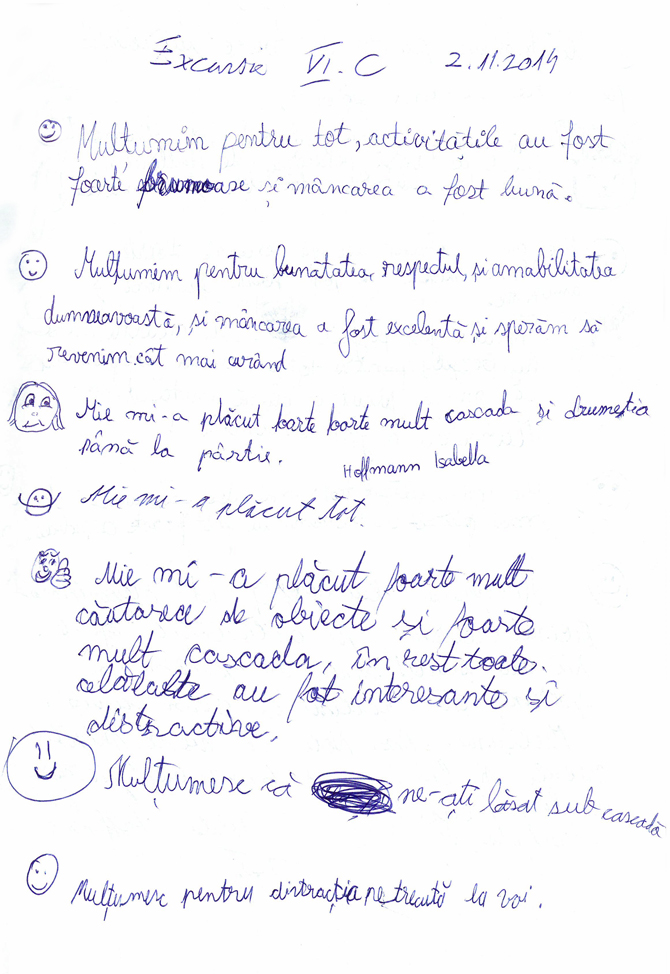 Excursie VI. C 2.11.2014
Mulțumim pentru tot, activitățile au fost
foarte frumoase și mâncarea a fost bună.
Mulțumim pentru bunătatea, respectul, și amabilitatea
dumneavoastă, și mâncarea a fost excelentă și sperăm să
revenim cât mai curând
Mie mi-a plăcut foarte foarte mult cascada și drumeția
până la pârtie. Hoffmann Isabella
Mie mi-a plăcut tot.
Mie mi-a plăcut foarte mult
căutarea de obiecte și foarte
mult cascada, în rest toate.
celălalte au fot interesante și
distractive.
Mulțumesc că ne-ați lăsat sub cascadă
Mulțumesc pentru distracția petrecută la voi.